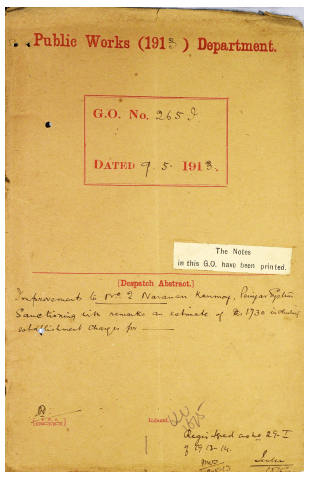 Public Works (1913) Department.
G.O. No. 265 I.
DATED 9.5.1913.
The Notes
in this G.O. have been printed.
[Despatch Abstract.]
Improvement to No 2 Naranan Kanmoy, Periyar System
Sanctioning with remarks an estimate of Rs 1730 including
establishment charges for
Indexed.
Registered as No. 29-I
of 1913-14.